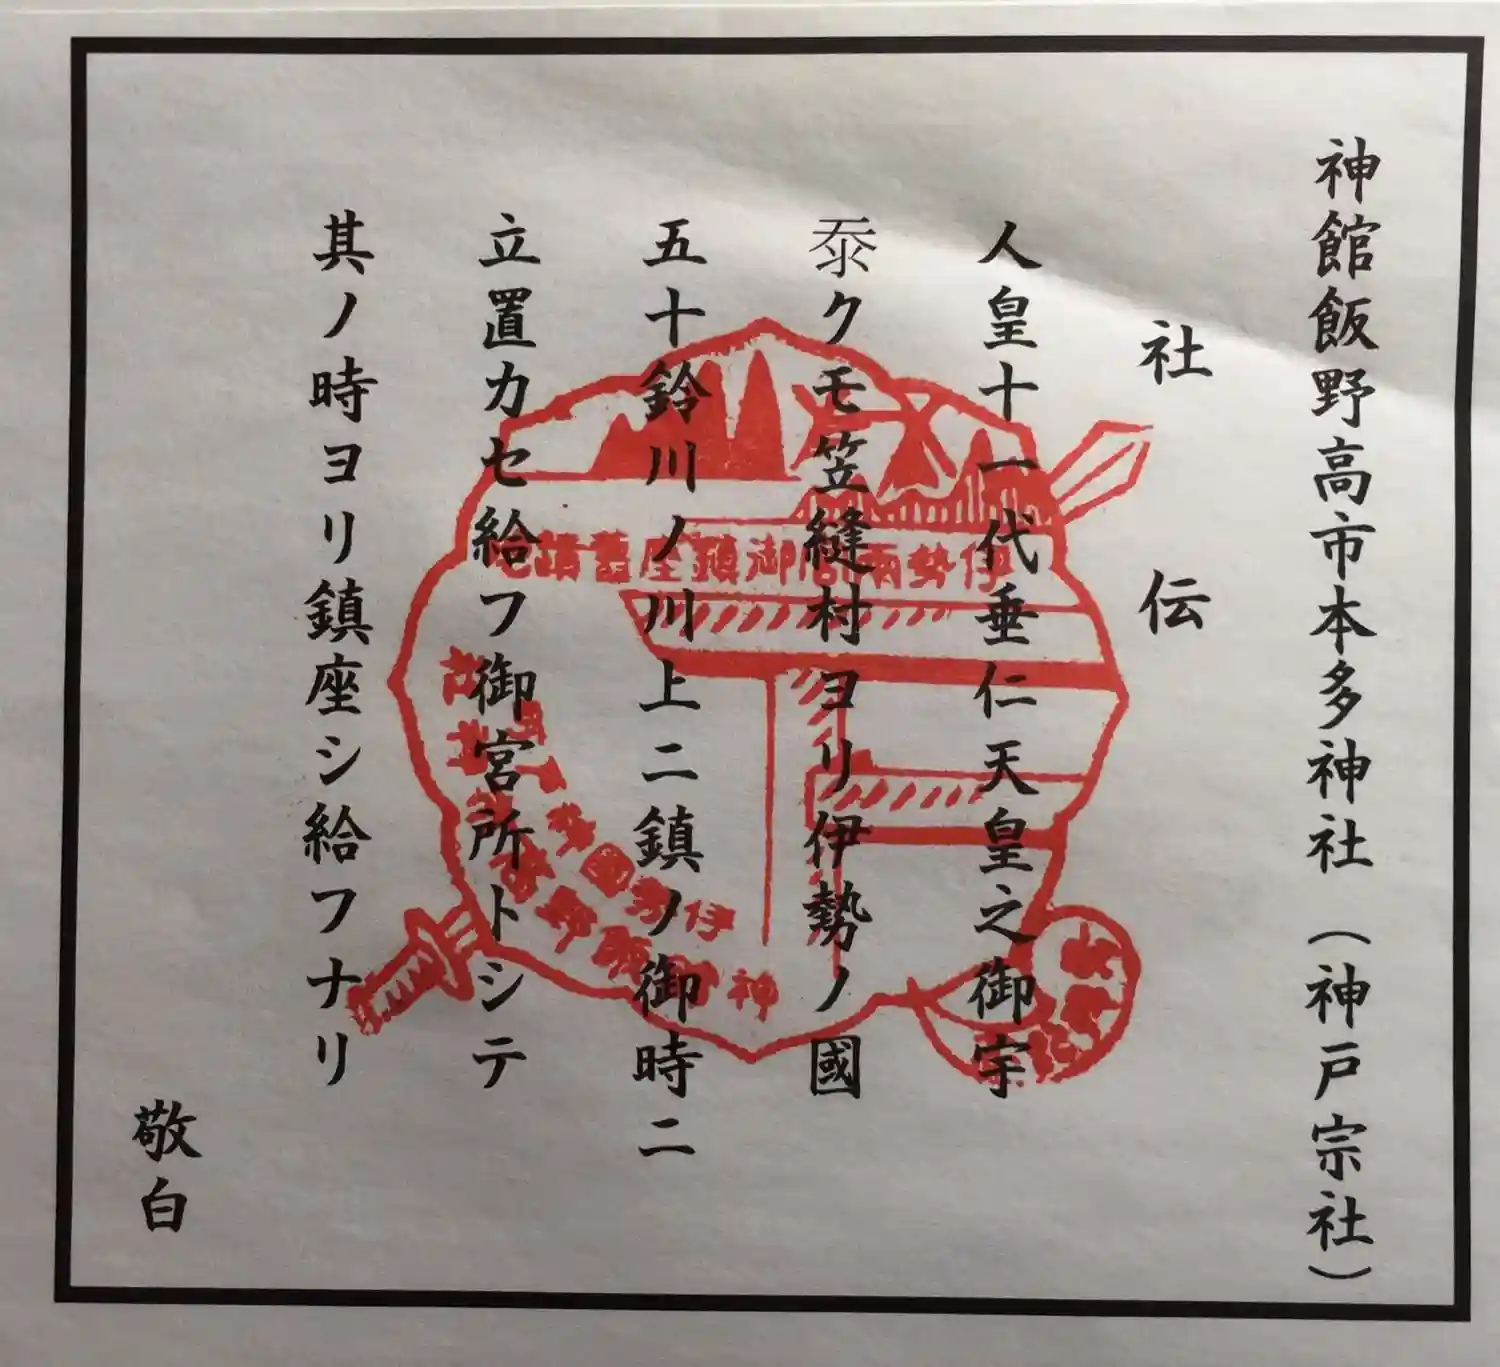 神館飯野高市本多神社（神戸宗社）
社伝
人皇十一代垂仁天皇之御宇
忝クモ笠縫村ヨリ伊勢ノ國
五十鈴川ノ川上ニ鎮ノ御時ニ
立置カセ給フ御宮所トシテ
其ノ時ヨリ鎮座シ給フナリ
敬白
伊勢兩宮御鎮座舊蹟地